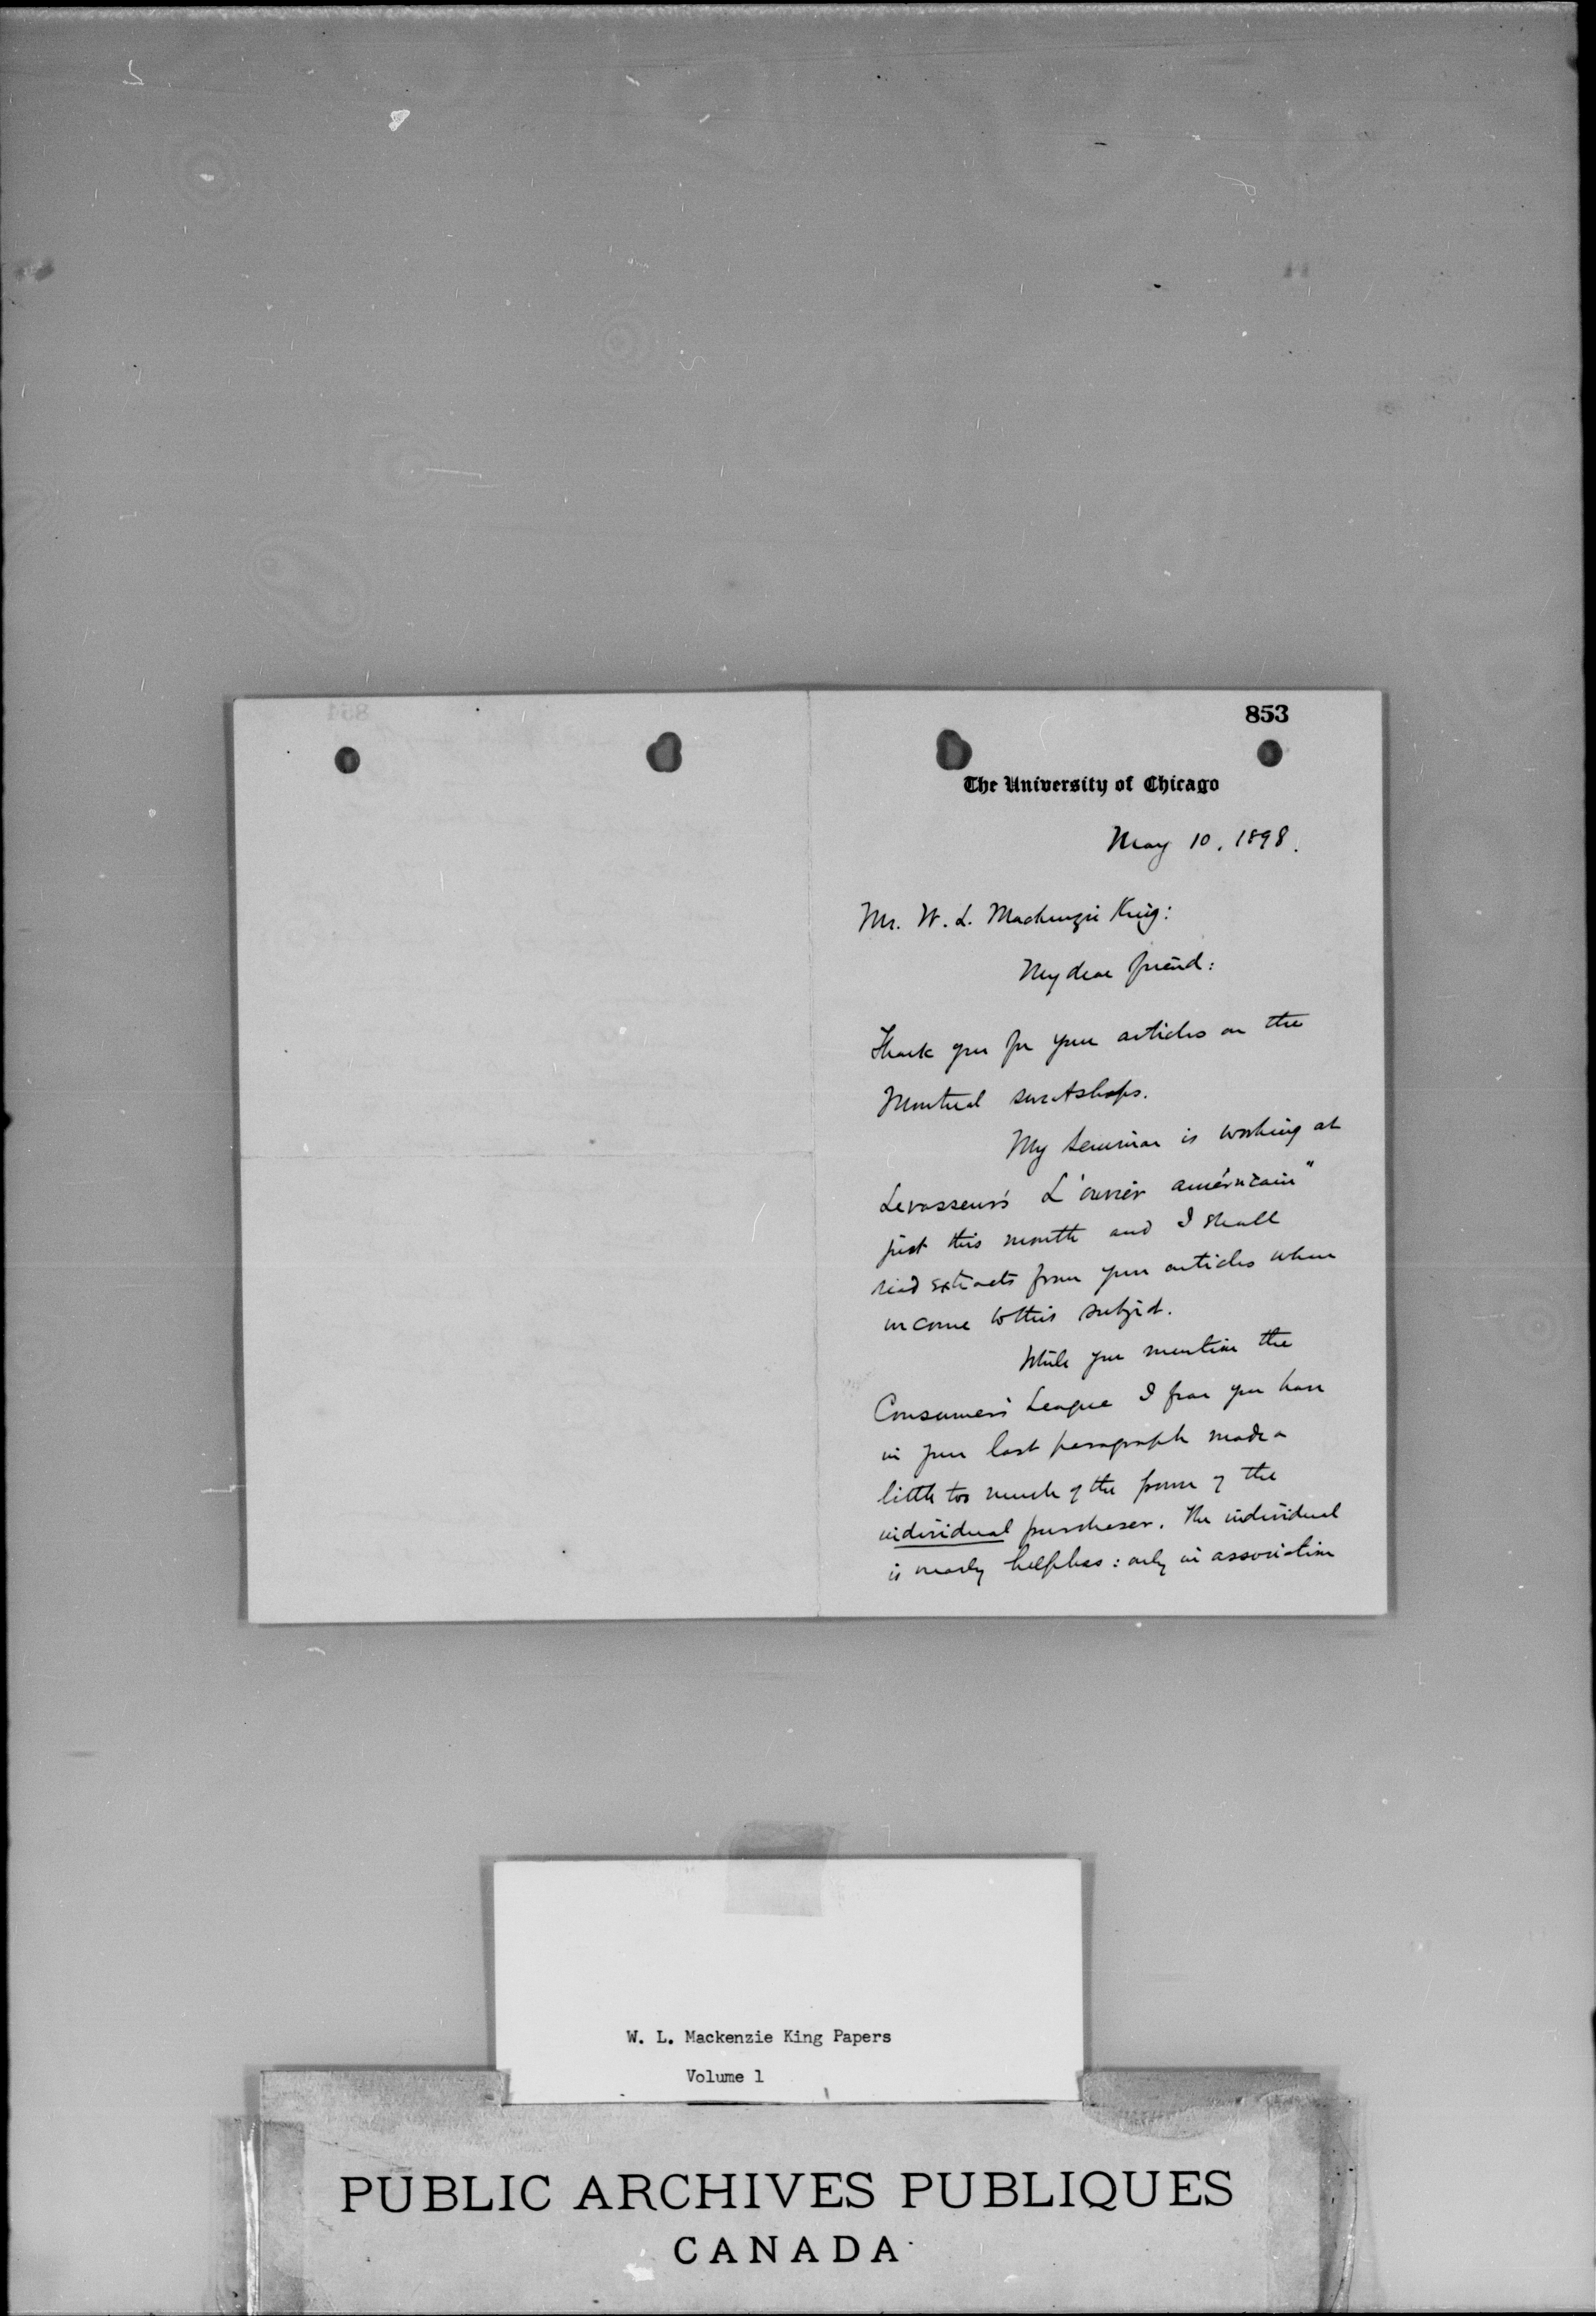 853
The University of Chicago
May 10, 1898.
Mr. W. L. Mackenzie King:
My dear friend:
Thank you for your articles on the
Montreal sweatshops.
My seminar is working at
Levasseur's L'ouvrier américain"
just this month and I shall
read extracts from your articles when
we come to this subject.
While you mention the
Consumers' League I fear you have
in your last paragraph made a
little too much of the power of the
individual purchaser. The individual
is nearly helpless: only in association
W. L. Mackenzie King Papers
Volume 1
PUBLIC ARCHIVES PUBLIQUES
CANADA